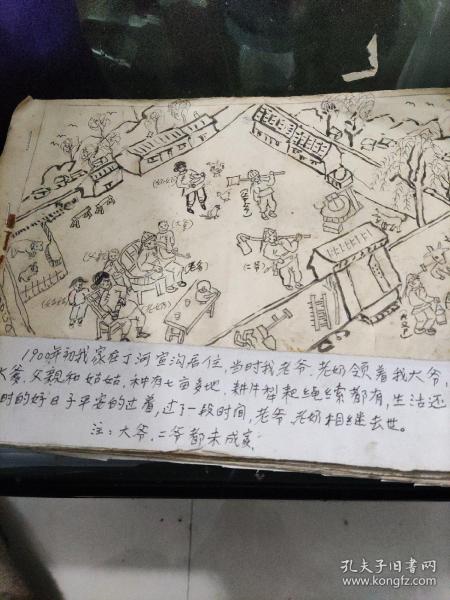 (大爷)
(父亲)
(老爷)
(二爷)
1900年初我家在丁河宣沟居住,当时我老爷、老奶领着我大爷,
爹、父亲和姑姑,种有七亩多地,耕牛犁耙绳索都有,生活还
时的好日子平安的过着,过了一段时间,老爷、老奶相继去世。
注:大爷、二爷都未成亥
孔夫子旧书网
www.kongfz.com